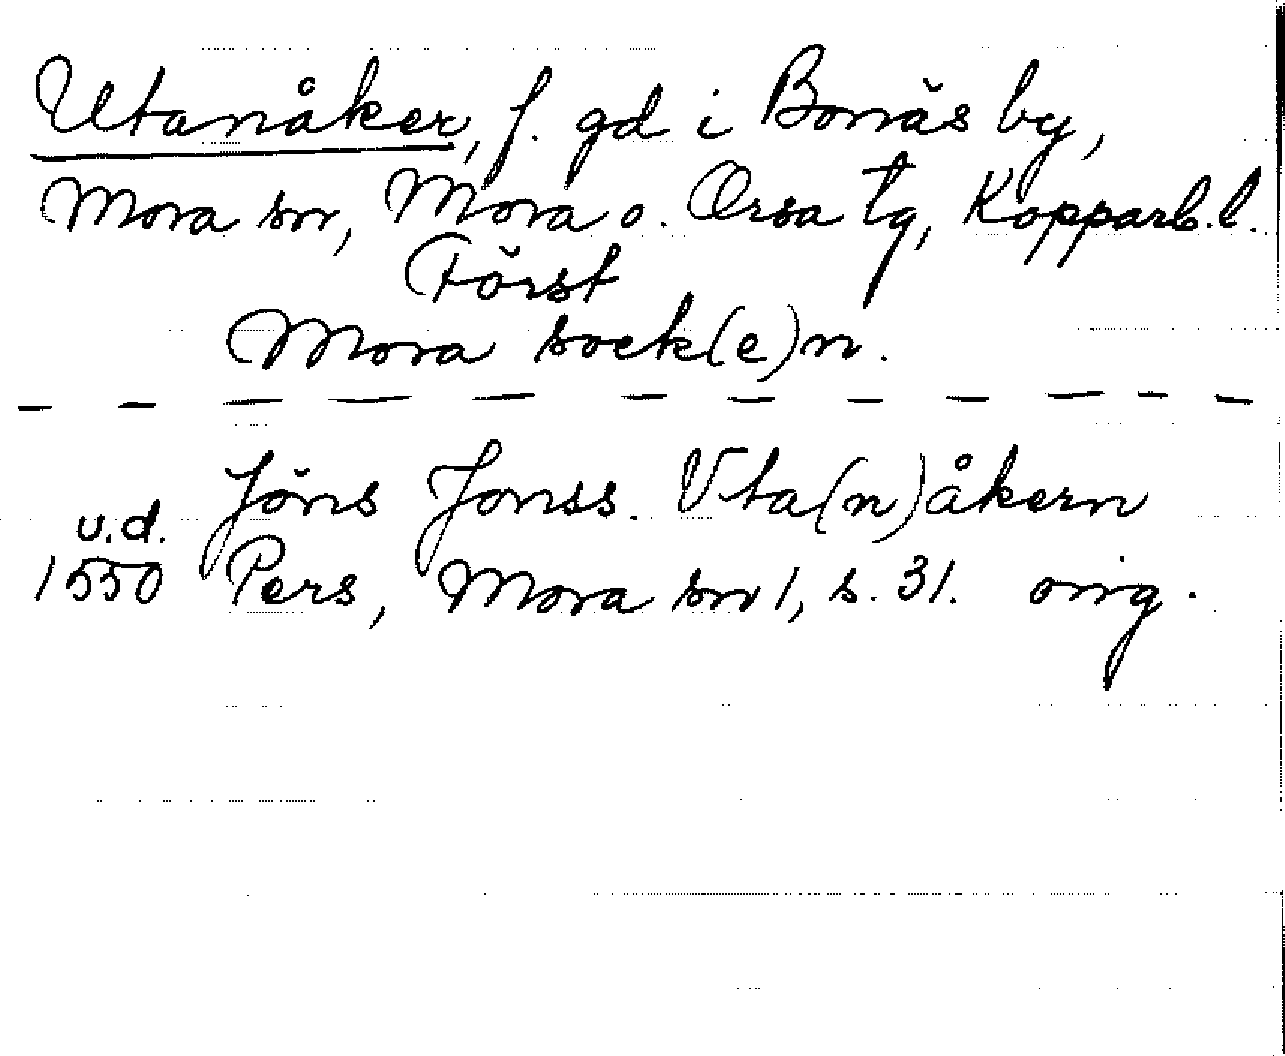 Utanåker, f. gd i Bonäs by,
Mora sn, Mora o. Orsa tg, Kopparb.l.
Först
Mora sock(e)n.
Jöns Jonss. Vta(n)åkern
u.d.
1550 Pers, Mora sn 1, s. 31. orig.